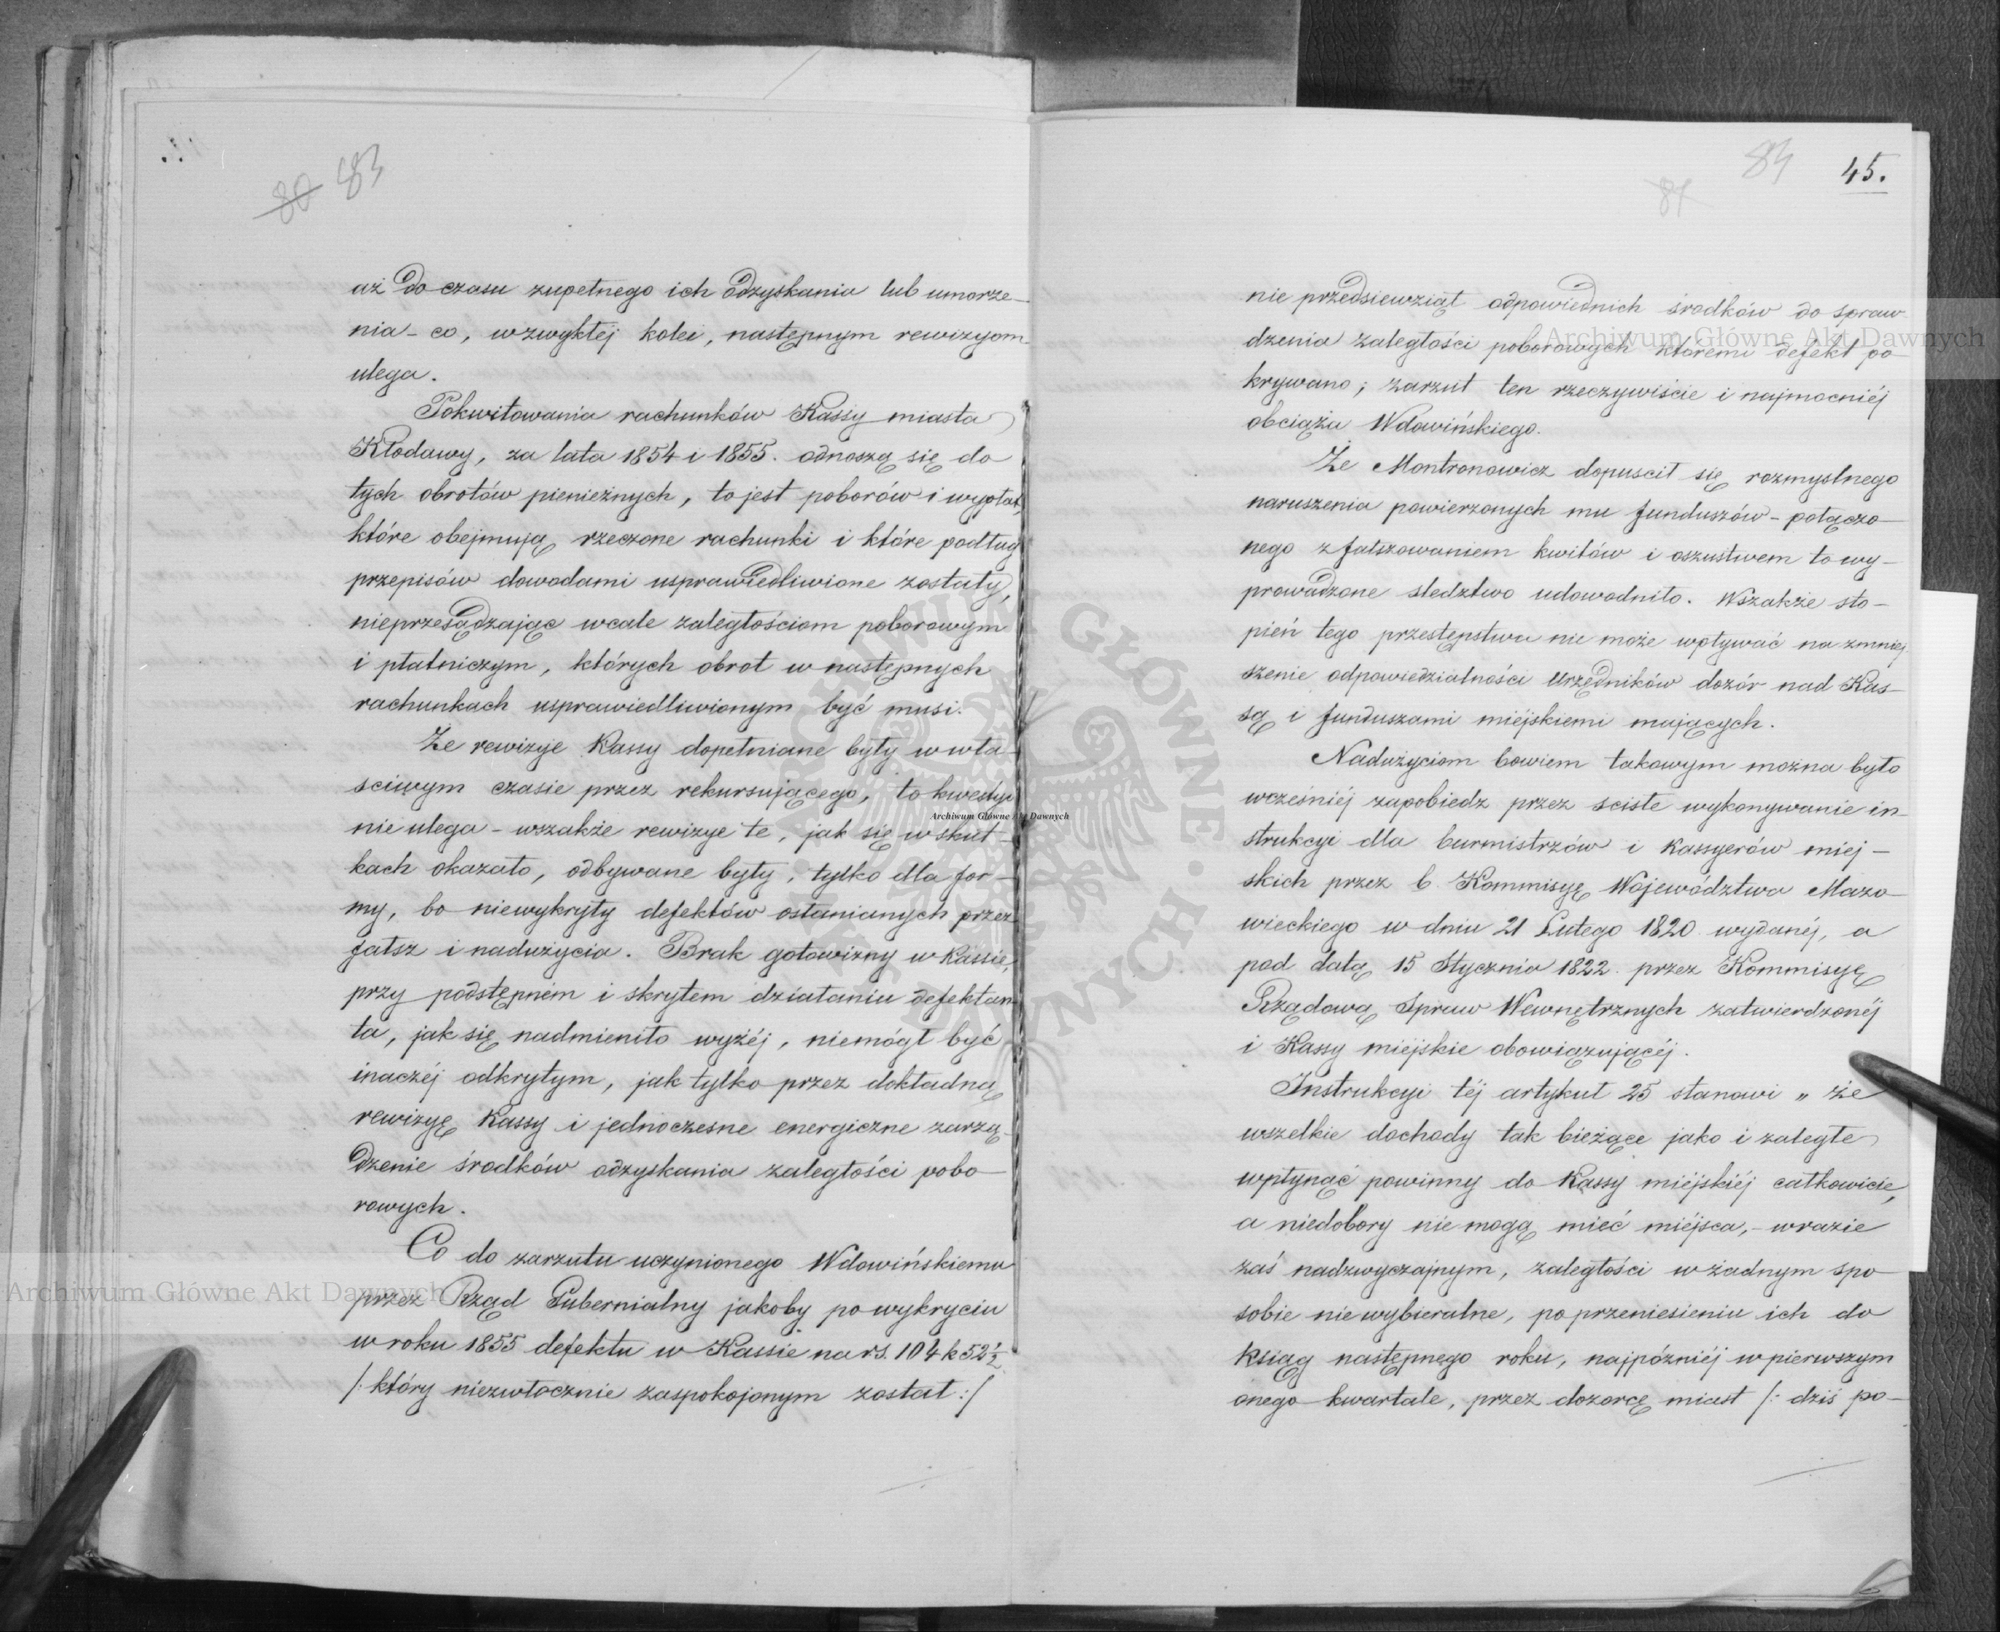 80 83
aż do czasu zupełnego ich odzyskania lub umorze-
nia - co, w zwykłej kolei, następnym rewizyom
ulega.
Pokwitowania rachunków Kassy miasta
Kłodawy, za lata 1854 i 1855. odnoszą się do
tych obrotów pieniężnych, to jest poborów i wypłat,
które obejmują rzeczone rachunki i które podług
przepisów dowodami usprawiedliwione zostały,
nieprzesądzając wcale zaległościom poborowym
i płatniczym, których obrot w następnych
rachunkach usprawiedliwionym być musi.
Że rewizye Kassy dopełniane były w wła-
sciwym czasie przez rekursującego, to kwestyi
nie ulega - wszakże rewizye te, jak się w skut-
kach okazało, odbywane były, tylko dla for-
my, bo niewykryły defektów osłanianych przez
fałsz i nadużycia. Brak gotowizny w Kassie,
przy podstępném i skrytem działaniu defektan
ta, jak się nadmieniło wyżéj, niemógł być
inaczéj odkrytym, jak tylko przez dokładną
rewizyę Kassy i jednoczesne energiczne zarzą-
dzenie środków odzyskania zaległości pobo-
rowych.
Co do zarzutu uczynionego Wdowińskiemu
przez Rząd Gubernialny jakoby po wykryciu
w roku 1855 defektu w Kassie na rs. 104 k 52 ½
/: który niezwłocznie zaspokojonym został :/
84 45.
81
nie przedsiewziął odpowiednich środków do spraw
dzenia zaległości poborowych któremi defekt po-
krywano; zarzut ten rzeczywiście i najmocniéj
obciąża Wdowińskiego.
Że Montronowicz dopuscił się rozmyslnego
naruszenia powierzonych mu funduszów - połączo-
nego z fałszowaniem kwitów i oszustwem to wy-
prowadzone sledztwo udowodniło. Wszakże sto-
pień tego przestępstwa nie może wpływać na zmniej
szenie odpowiedzialności Urzędników dozór nad Kas-
są i funduszami miéjskiemi mających.
Nadużyciom bowiem takowym mozna było
wcześniéj zapobiedz przez scisłe wykonywanie in-
strukcyi dla burmistrzów i Kassyerów miej-
skich przez b Kommisyę Województwa Mazo-
wieckiego w dniu 21 Lutego 1820 wydanéj, a
pod datą 15 Stycznia 1822. przez Kommisyę
Rządową Spraw Wewnętrznych zatwierdzonéj
i Kassy miéjskie obowiązującéj.
Instrukcyi téj artykuł 25 stanowi „ że
wszelkie dochody tak bieżące jako i zaległe
wpłynąć powinny do Kassy miéjskiéj całkowicie,
a niedobory nie mogą mieć miéjsca, - w razie
zaś nadzwyczajnym, zaległości w żadnym spo-
sobie nie wybieralne, po przeniesieniu ich do
Ksiąg następnego roku, najpóźniéj w pierwszym
onego kwartale, przez dozorcę miast /: dziś po-
Archiwum Główne Akt Dawnych
Archiwum Główne Akt Dawnych
Archiwum Główne Akt Dawnych
ARCHIWUM GŁÓWNE AKT DAWNYCH